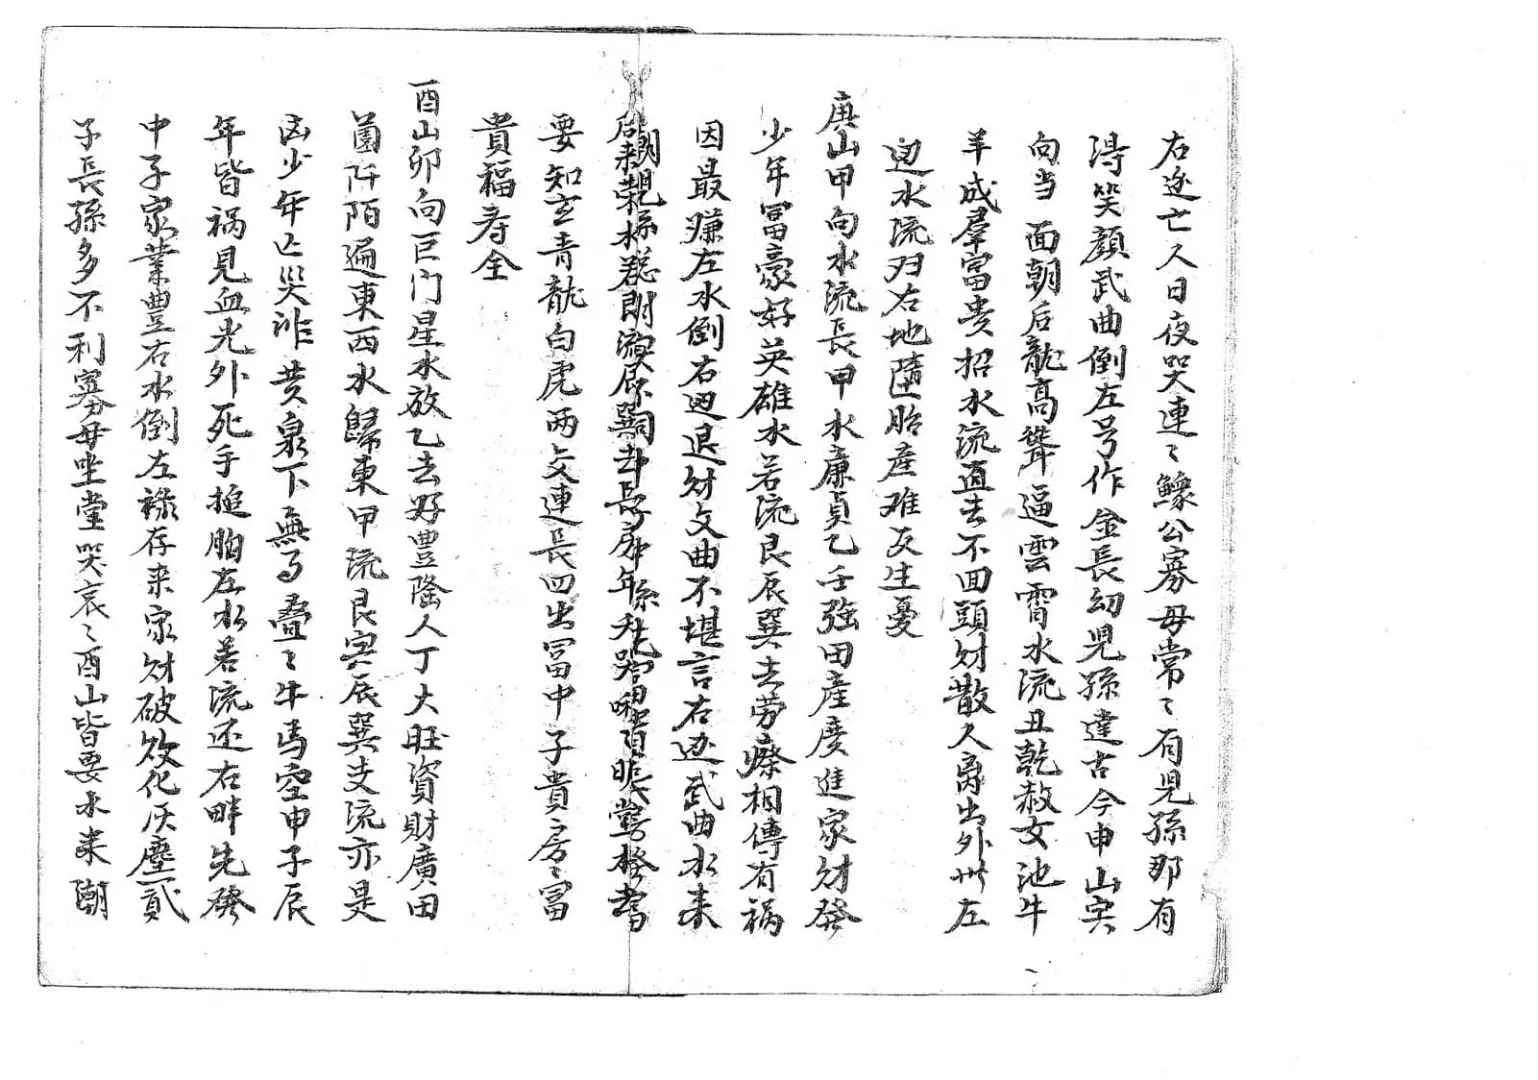 右边亡人日夜哭連〻鰥公寡母常〻有児孫那有
淂笑顔武曲倒左号作金長幼児孫達古今申山寅
向当面朝后龍高聳逼雲霄水流丑乾赦女池牛
羊成群富贵招水流直去不回頭财散人离出外州左
边水流归右地墮胎産难友生憂
庚山甲向水流長甲水廉貞乙壬強田産廣進家财發
少年冨豪好英雄水若流艮辰巽去劳瘵相傳有禍
因最嫌左水倒右边退财文曲不堪言右边武曲水来
朝
要知玄青龍白虎两文連長四出冨中子貴房〻冨
貴福寿全
酉山卯向巨门星水放乙去好豊隆人丁大旺資財廣田
薗阡陌遍東西水歸東甲流艮寅辰巽支流亦是
凶少年亡災祚黄泉下無子叠〻牛馬空申子辰
年皆祸見血光外死手搥胸左水若流还右畔先發
中子家業豊右水倒左禄存来家财破败化灰塵貳
子長孫多不利寡母坐堂哭哀〻酉山皆要水来朝